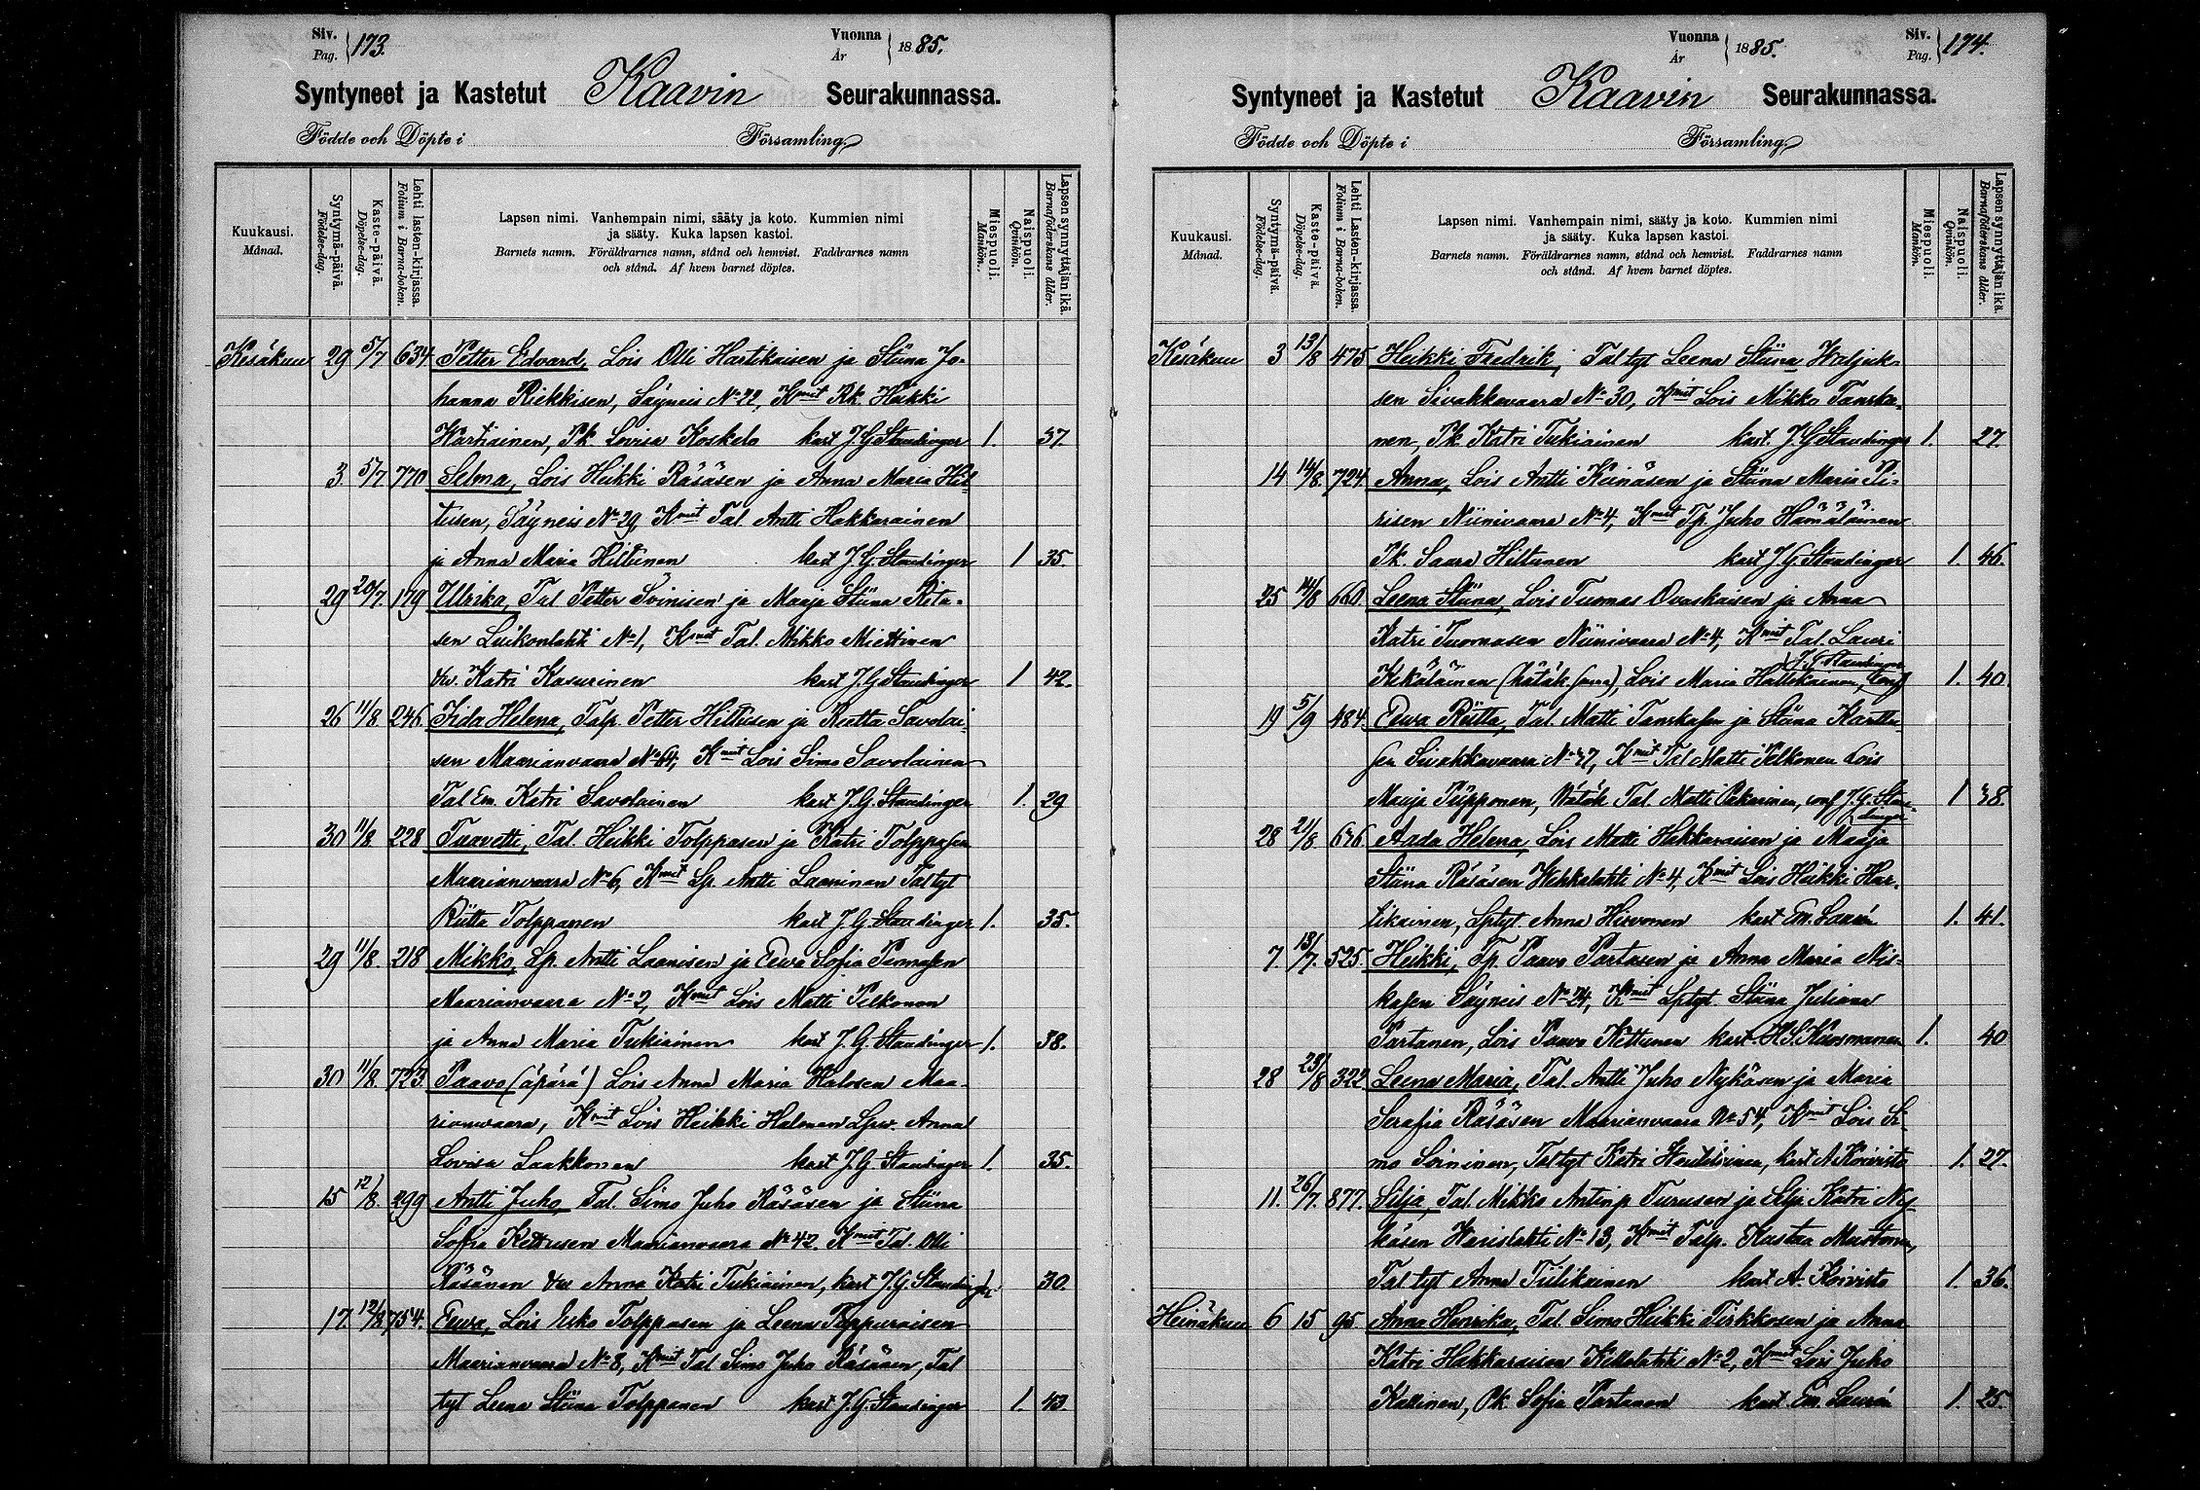 Siv. Pag. 173.
Vuonna År 1885.
Syntyneet ja Kastetut Kaavin Seurakunnassa.
Födde och Döpte i Församling
Kuukausi. Månad.
Syntymä-päivä. Födelse-dag.
Kaste-päivä. Döpelse-dag.
Lehti lasten-kirjassa. Folium i Barna-boken.
Lapsen nimi. Vanhempain nimi, sääty ja koto. Kummien nimi
ja sääty. Kuka lapsen kastoi.
Barnets namn. Föräldrarnes namn, stånd och hemvist. Faddrarnes namn
och stånd. Af hvem barnet döptes.
Miespuoli. Mankön.
Naispuoli. Qvinkön.
Lapsen synnyttäjän ikä. Barnaföderskans ålder.
Kesäkuu 29 5/7 634 Petter Edvard, Lois Olli Hartikaisen ja Stiina Jo-
hanna Riekkisen, Säyneis No 22, Kmit Rk. Heikki
Wartiainen, Pk Lovisa Koskelo kast J.G Staudinger 1. 37
3. 5/7 770 Selma, Lois Heikki Räsäsen ja Anna Maria Hil-
tusen, Säyneis No 29 Kmit Tal. Antti Hakkarainen
ja Anna Maria Hiltunen kast J.G. Staudinger 1 35.
29 20/7. 179 Ulrika, Tal Petter Soinisen ja Maaja Stiina Rita-
sen Luikonlahti No 1, Kmit Tal. Mikko Miettinen
vv. Katri Kasurinen kast J.G Staudinger 1 42.
26 11/8 246. Iida Helena, Talp. Petter Hiltusen ja Reetta Savolai-
sen Maarianvaara No 64, Kmit Lois Simo Savolainen
Tal Em. Katri Savolainen kast J.G. Staudinger 1. 29
30 11/8 228 Taavetti, Tal. Heikki Tolppasen ja Katri Tolppasen
Maarianvaara No 6, Kmit Lp. Antti Laaninen Tal tyt
Riitta Tolppanen kast J.G. Staudinger 1. 35.
29 11/8. 218 Mikko, Lp. Antti Laanisen ja Eewa Sofia
Maarianvaara No 2, Kmit Lois Matti Pelkonen
ja Anna Maria Tukiainen kast J.G. Staudinger 1. 38.
30 11/8. 723. Paavo (äpärä) Lois Anna Maria Halosen Maa-
rianvaara, Kmit Lois Heikki Halonen Lpv. Anna
Lovisa Laakkonen kast J.G Staudinger 1. 35.
15 12/8. 299 Antti Juho, Tal. Simo Juho Räsäsen ja Stiina
Sofia Kettusen Maarianvaara No 42. Kmit Tal. Olli
Räsänen vv Anna Katri Tukiainen, kast J.G Staudinger 1. 30.
17. 12/8 754. Eewa, Lois Esko Tolppasen ja Leena Toppuraisen
Maarianvaara No 8, Kmit Tal Simo Juho Räsänen, Tal
tyt Leena Stiina Tolppanen kast J.G. Staudinger 1. 43
Vuonna År 1885.
Siv. Pag. 174.
Syntyneet ja Kastetut Kaavin Seurakunnassa.
Födde och Döpte i Församling
Kuukausi. Månad.
Syntymä-päivä. Födelse-dag.
Kaste-päivä. Döpelse-dag.
Lehti Lasten-kirjassa. Folium i Barna-boken.
Lapsen nimi. Vanhempain nimi, sääty ja koto. Kummien nimi
ja sääty. Kuka lapsen kastoi.
Barnets namn. Föräldrarnes namn, stånd och hemvist. Faddrarnes namn
och stånd. Af hvem barnet döptes.
Miespuoli. Mankön.
Naispuoli. Qvinkön.
Lapsen synnyttäjän ikä. Barnaföderskans ålder.
Kesäkuu 3 13/8 475 Heikki Fredrik, Tal tyt Leena Stiina Waljak-
sen Sivakkavaara No 30, Kmit Lois Mikko Tanska-
nen, Pk Katri Tukiainen kast. J.G Staudinger 1. 27
14 14/8. 724. Anna, Lois Antti Heinäsen ja Stiina Maria Pi-
risen Niinivaara No 4, Kmit Tp. Juho Hämäläinen
Pk. Saara Hiltunen kast J.G. Staudinger 1. 46.
25 14/8 660. Leena Stiina, Lois Tuomas Ovaskaisen ja Anna
Katri Tuomasen Niinivaara No 4, Kmit Tal. Lauri
Kekäläinen (hätäk ), Lois Maria Hallikainen, conf J.G Staudinger 1. 40.
19 5/9 484. Eewa Riitta, Tal. Matti Tanskasen ja Stiina Karttu-
sen Sivakkavaara No 47, Kmit Tal Matti Pelkonen Lois
Maija Piipponen, Hätäk Tal. Matti Pakarinen, conf J.G. Stau-
dinger 1 38.
28 21/8 676 Aada Helena, Lois Matti Hakkaraisen ja Maaja
Stiina Räsäsen Wehkalahti No 4, Kmit Lois Heikki Har-
tikainen, Lptyt. Anna Hirvonen kast Em. Laurén 1. 41.
7. 13/7. 525. Heikki, Tp. Paavo Partasen ja Anna Maria Nis-
kasen Säyneis No 24, Kmit Lptyt Stiina Juliana
Partanen, Lois Paavo Kettunen kast H.S. Kuosmanen 1. 40
28 23/8 322 Leena Maria, Tal. Antti Juho Nykäsen ja Maria
Serafia Räsäsen Maarianvaara No 54, Kmit Lois Si-
mo Soininen, Tal tyt Katri , kast A Koivisto 1. 27.
11. 26/7. 877. Silja, Tal. Mikko Antinp Turusen ja Silja Katri Ny-
käsen Warislahti No 13, Kmit Talp. Kustaa Mustonen,
Tal tyt Anna Tiilikainen kast A. Koivisto 1. 36.
Heinäkuu 6 15 95 Anna Henrika, Tal. Simo Heikki Pirkkosen ja Anna
Katri Hakkaraisen Kettolahti No 2, Kmit Lois Juho
Kallinen, Pk Sofia Partanen kast Em. Laurén 1. 25.